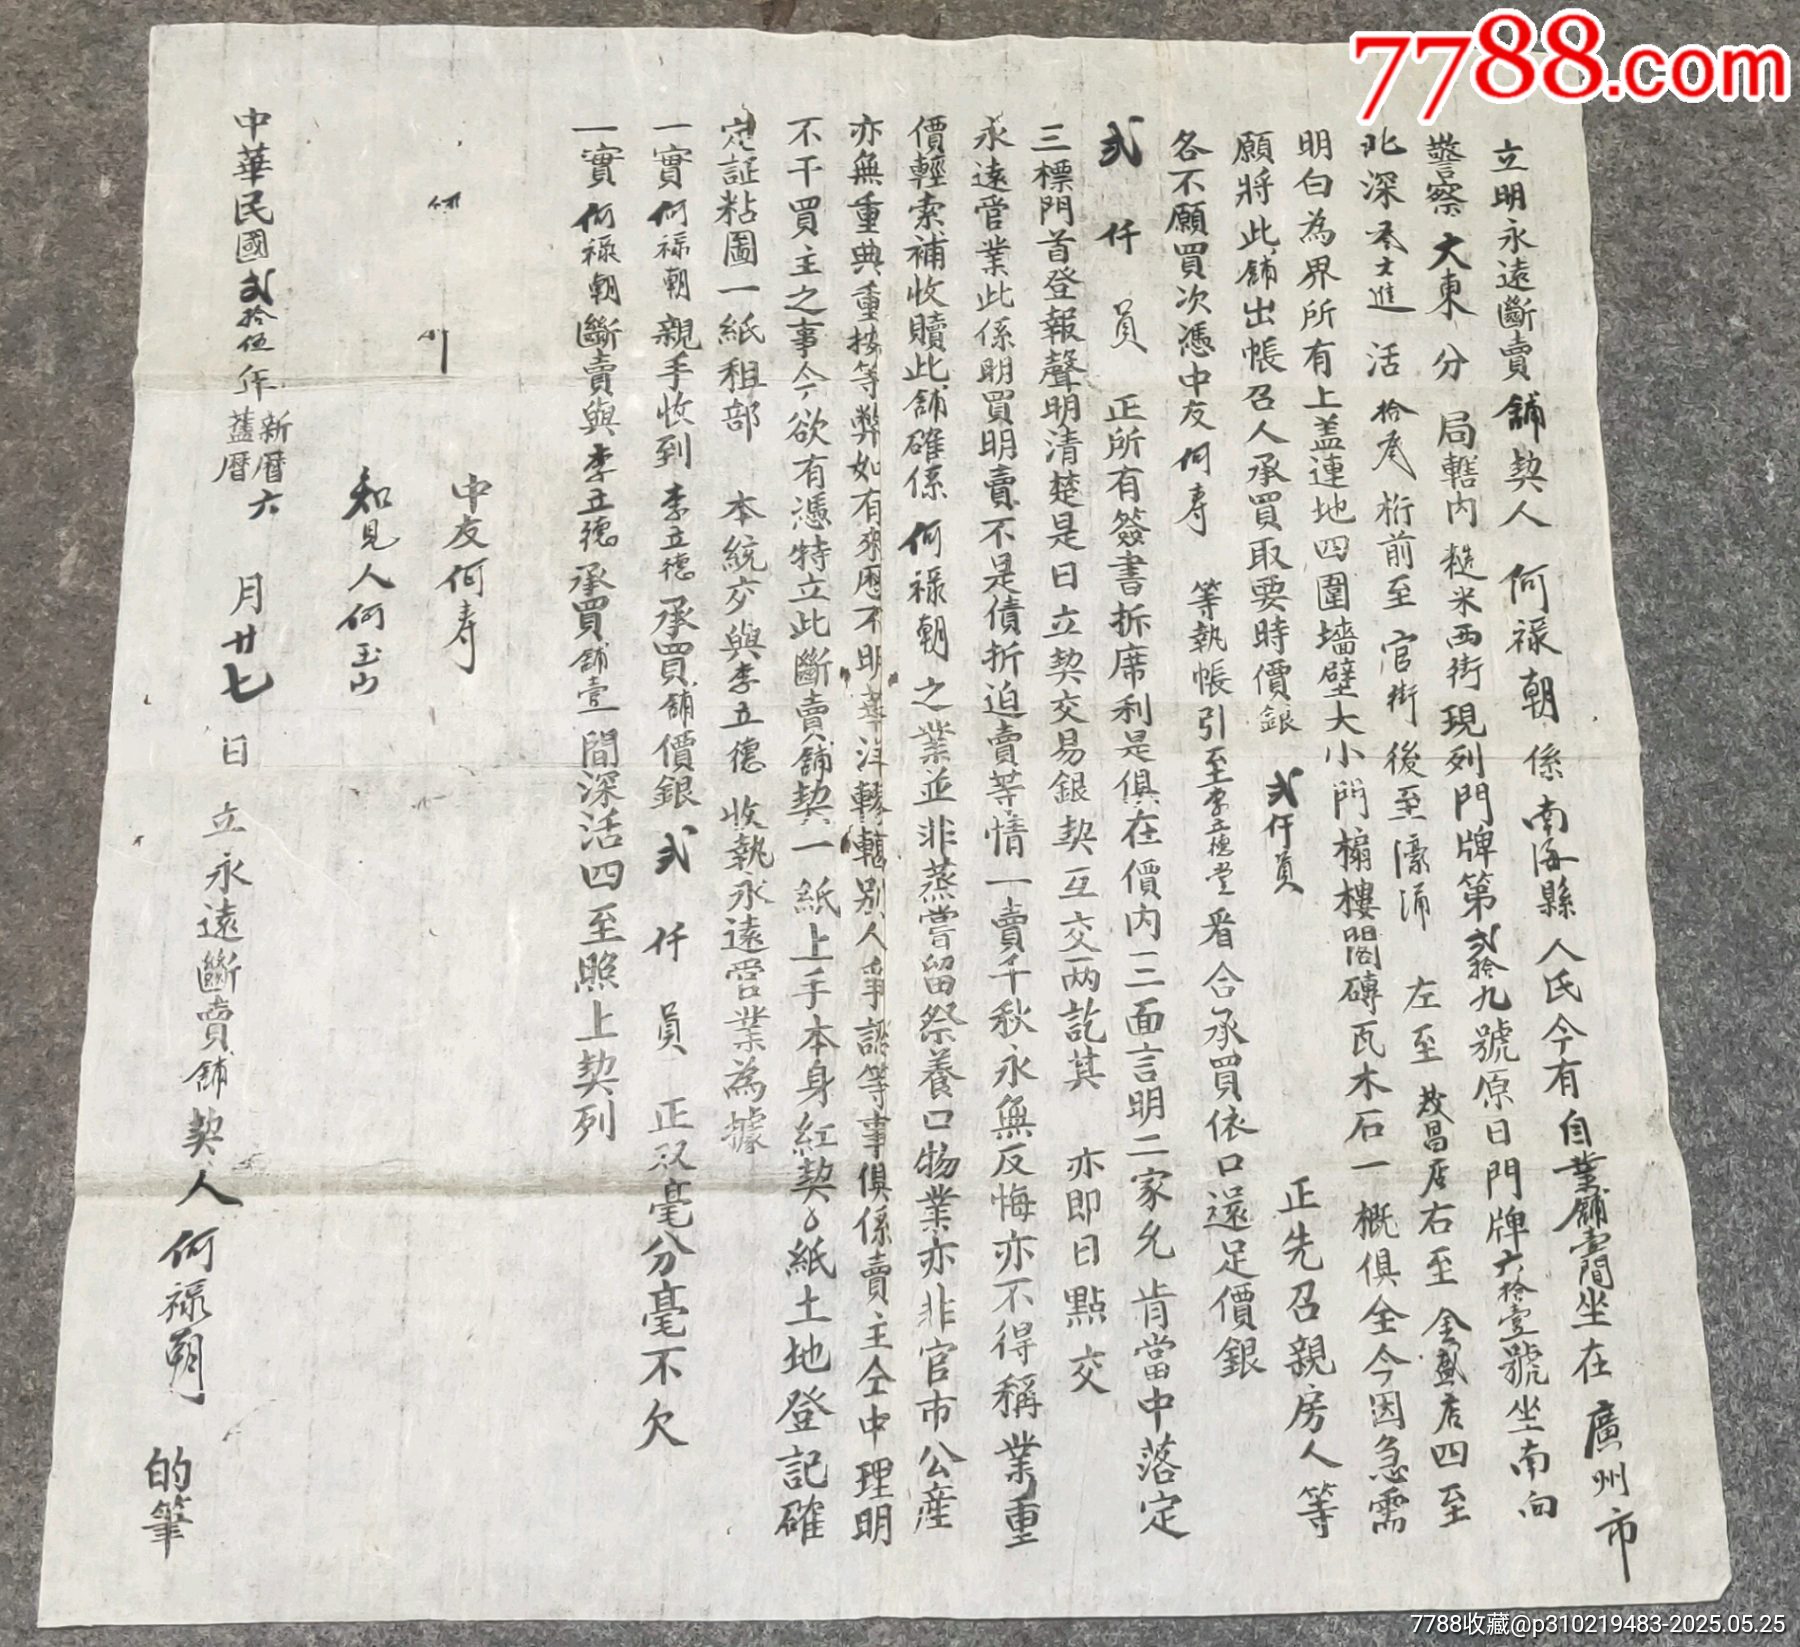 立明永遠斷賣舖契人 何祿朝 係 南海縣 人氏今有 自業舖壹間坐在 廣州市
警察 大東 分 局轄內 糙米西街現列門牌第弍拾九號原日門牌六拾壹號坐南向
北深 進 活 拾 桁前至 官街後至濠涌 左至 昌店右至 金盛店四至
明白為界所有上盖連地四圍墻壁大小門樓閣磚瓦木石一概俱全今因急需
願將此舖出帳召人承買取要時價銀 弍仟員 正先召親房人等
各不願買次憑中友 何壽 等執帳引至李五德堂看合承買依口還足價銀
弍仟員 正所有簽書折席利是俱在價內三面言明二家允肯當中落定
三標門首登報聲明清楚是日立契交易銀契互交兩訖其 亦即日點交
永遠管業此係明買明賣不是債折迫賣等情一賣千秋永無反悔亦不得稱業重
價輕索補收贖此舖確係 何祿朝 之業並非蒸嘗留祭養口物業亦非官市公産
亦無重典重按等弊如有來歷不明轇轕別人爭認等事俱係賣主仝中理明
不干買主之事今欲有憑特立此斷賣舖契一紙上手本身紅契紙土地登記確
定証粘圖一紙租部 本統交與李五德 收執永遠營業為據
一實何祿朝親手收到李五德承買舖價銀 弍仟員 正毫分毫不欠
一實何祿朝斷賣與李五德承買舖壹間深活四至照上契列
中友何壽
知見人何玉山
中華民國弍拾伍年 新曆 舊曆 六月廿七日 立永遠斷賣舖契人何祿朝 的筆
7788.com
7788收藏@p310219483-2025.05.25